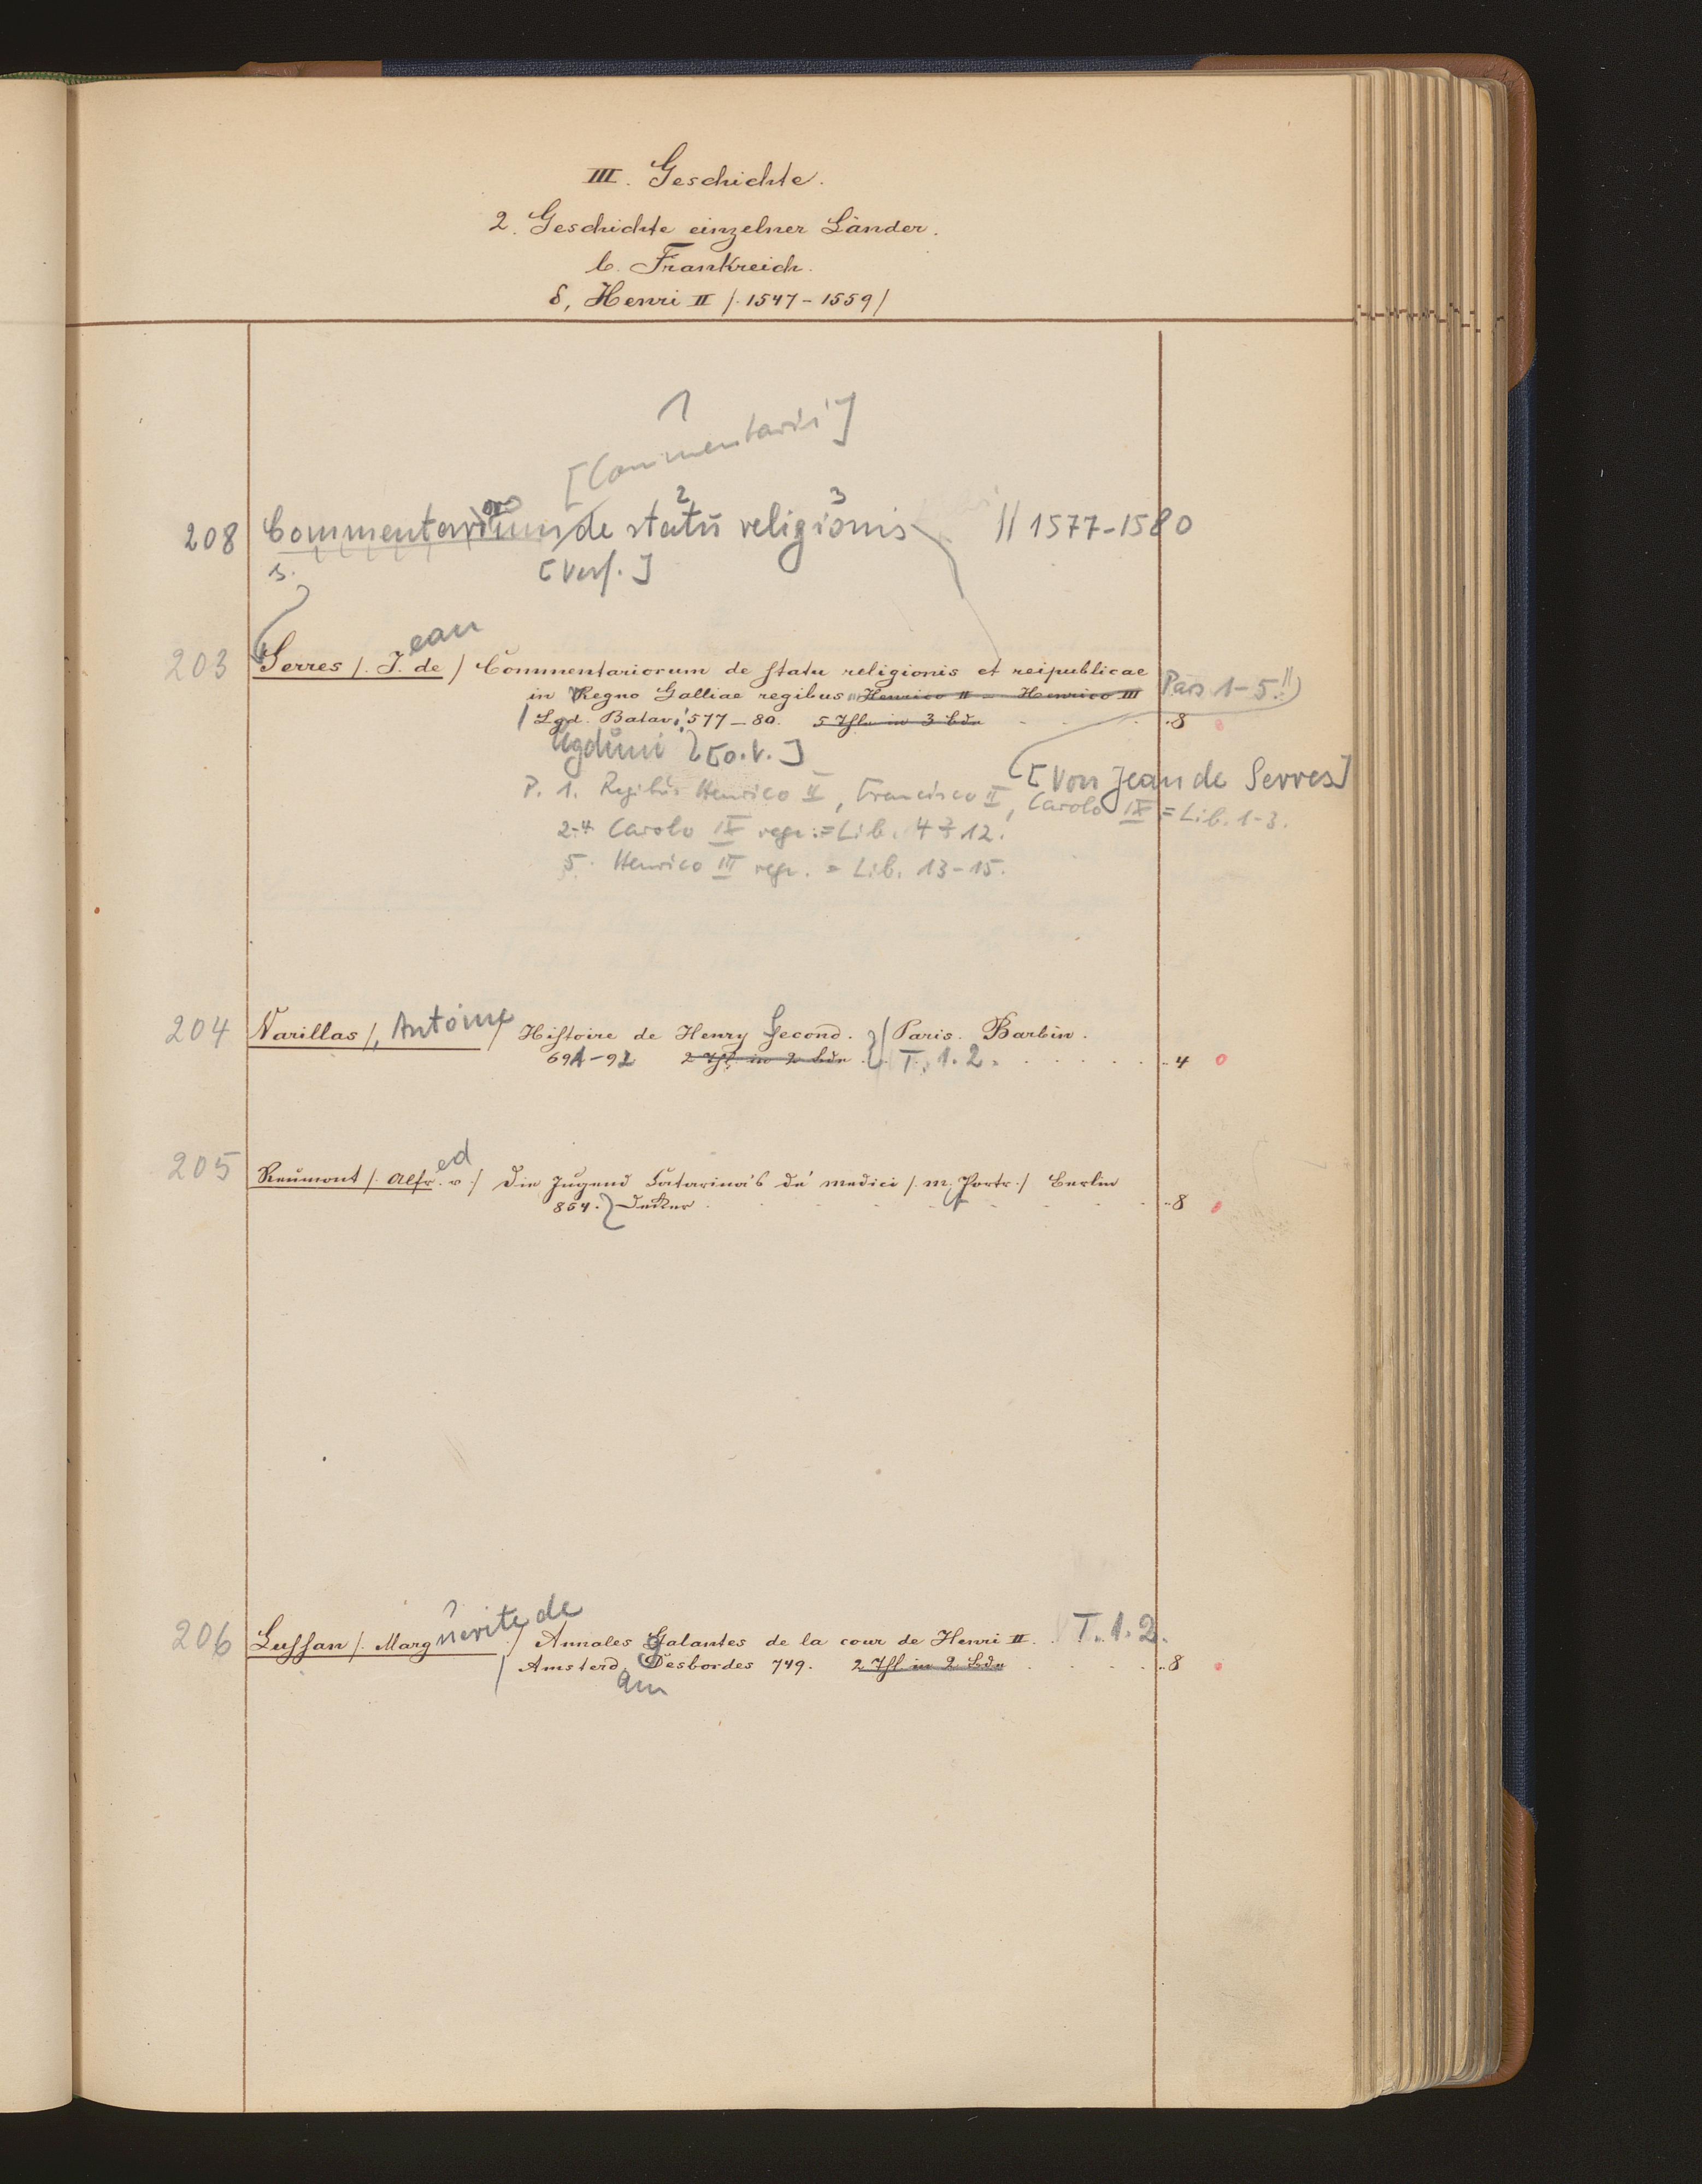 III. Geschichte.
2. Geschichte einzelner Länder.
b. Frankreich.
δ, Henri II /. 1547-1559/
1
[Commentarii]
208 Commentariorum de statu religionis || 1577-1580
2 3
s. [Verf.]
203 Serres /. Jean de / Commentariorum de statu religionis et reipublicae
in Regno Galliae regibus Henrico II - Henrico III Pars 1-5.
Lgd. Batav. 1577-80. 5 Thle in 3 Bdn 8
[o.V.]
[Von Jean de Serres]
P. 1. Regibus Henrico II, Francisco II, Carolo IX = Lib. 1-3.
2-4 Carolo IX rege = Lib. 4-12.
5. Henrico III rege. = Lib. 13-15.
204 Varillas /, Antoine / Histoire de Henry Second. Paris. Barbin.
691-92 2 Thl in 2 Bdn T. 1. 2. 4
205 Reumont /. Alfred v./ Die Jugend Catarina's de' medici /. m. Portr./ Berlin
854. Decker 8
206 Lussan /. Marguerite de / Annales Galantes de la cour de Henri II. T. 1. 2.
Amsterdam Desbordes 749. 2 Thl in 2 Bdn 8